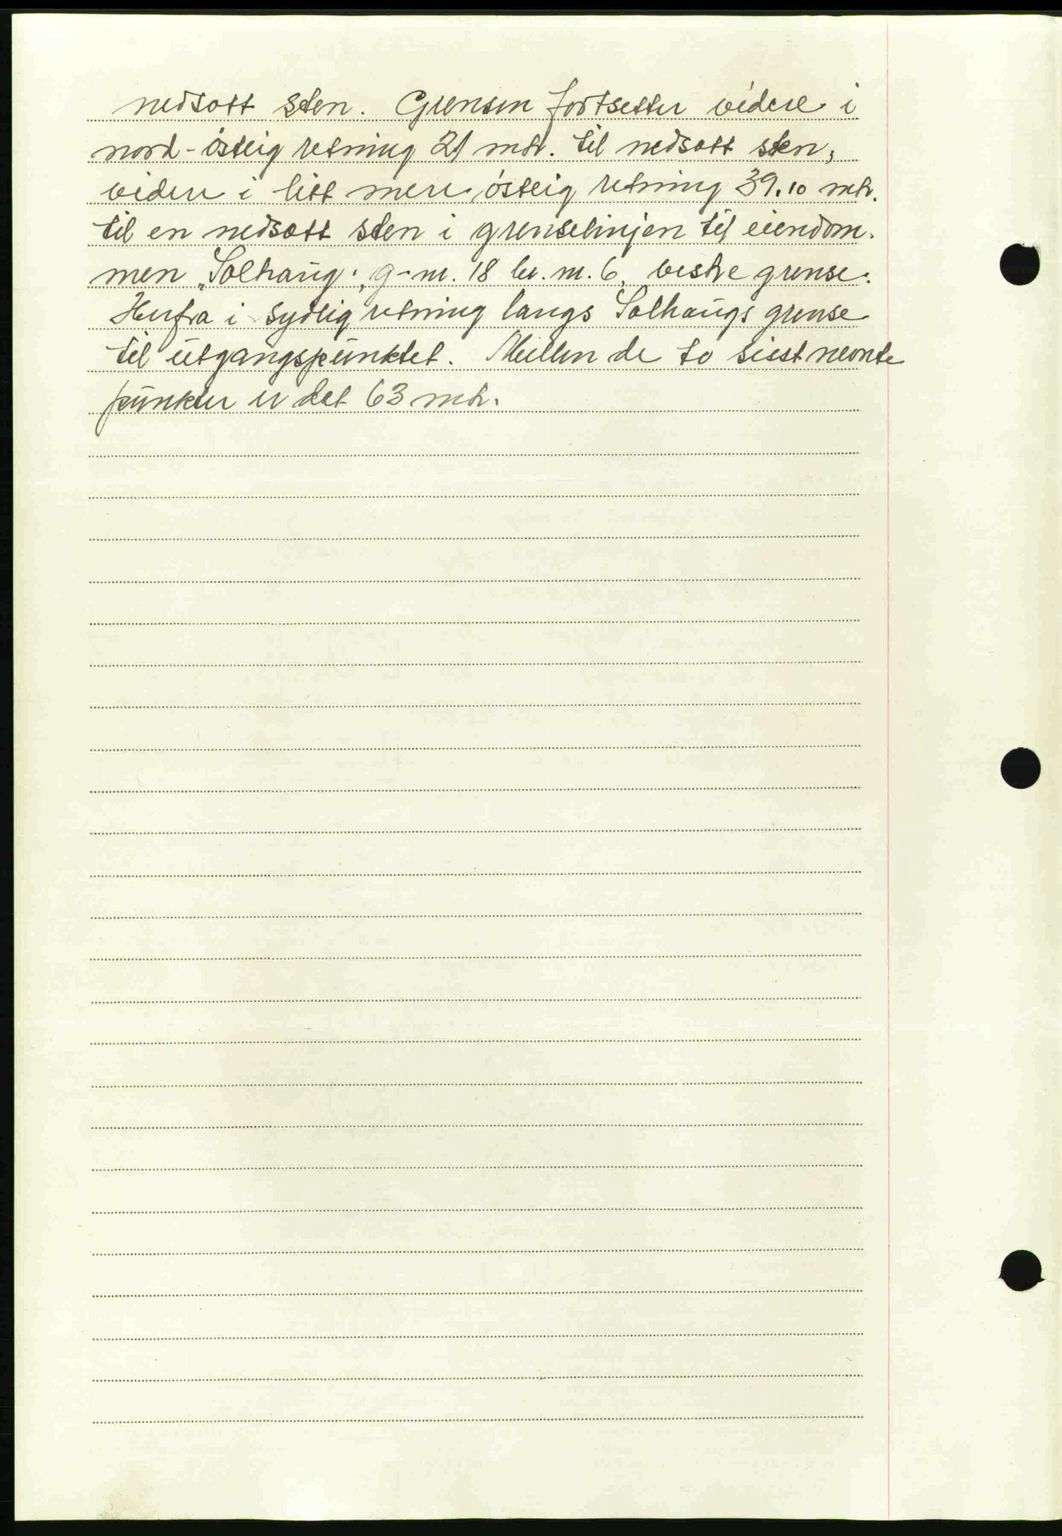 nedsatt sten. Grensen fortsetter videre i
nord-östlig retning 21 mtr. til nedsatt sten,
videre i litt mere östlig retning 39.10 mtr.
til en nedsatt sten i grenselinjen til eiendom-
men „Solhaug", g-nr. 18 br. nr. 6, vestre grense.
Herfra i sydlig retning langs Solhaugs grense
til utgangspunktet. Mellem de to sisst nevnte
punkter er det 63 mtr.